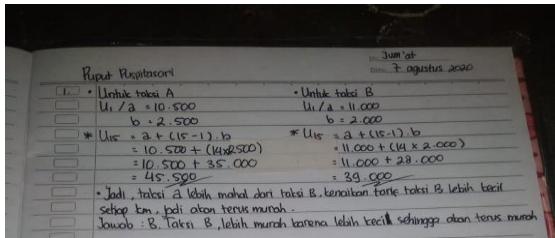 Jum'at
Puput Puspitasari
7 agustus 2020
1. • Untuk taksi A
U₁ / a = 10.500
b = 2.500
* U₁₅ = a + (15-1).b
= 10.500 + (14x2500)
= 10.500 + 35.000
= 45.500
• Untuk taksi B
U₁ / a = 11.000
b = 2.000
* U₁₅ = a + (15-1).b
= 11.000 + (14 x 2.000)
= 11.000 + 28.000
= 39.000
• Jadi, taksi a lebih mahal dari taksi B, kenaikan tarif taksi B lebih kecil
setiap km, jadi akan terus murah.
Jawab : B. Taksi B, lebih murah karena lebih kecil sehingga akan terus murah